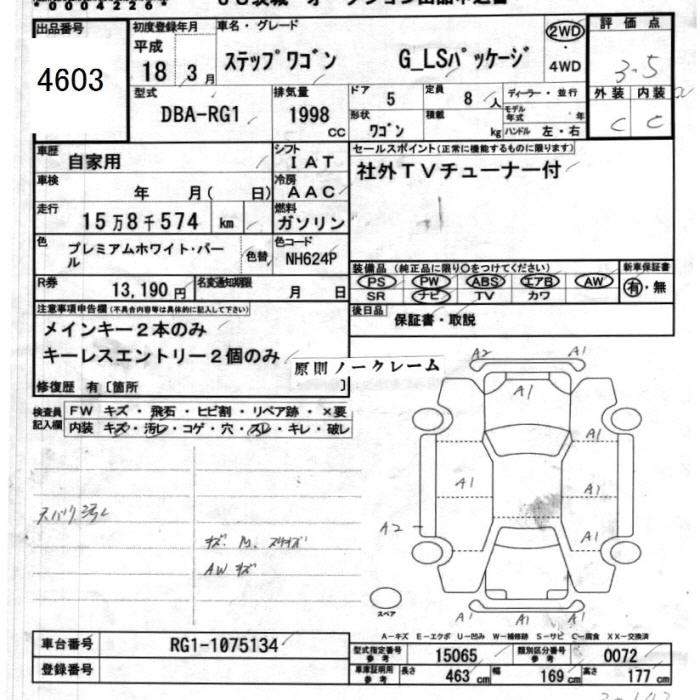 *00042264
出品番号
4603
初度登録年月
平成
18 3月
車名・グレード
ステップワゴン G_LSパッケージ
2WD
・
4WD
評価点
3.5
外装 内装
C C
型式
DBA-RG1
排気量
1998
cc
ドア
5
定員
8 人
形状
ワゴン
積載
kg
ディーラー・並行
モデル年式 年
ハンドル 左・右
車歴
自家用
シフト
IAT
車検
年 月( 日)
冷房
AAC
走行
15万8千574 km
燃料
ガソリン
色
プレミアムホワイト・パール
色替
色コード
NH624P
R券
13,190円
名変通知期限
月 日
セールスポイント(正常に機能するものに限ります)
社外TVチューナー付
装備品 (純正品に限り○をつけてください)
PS PW ABS エアB AW
SR ナビ TV カワ
新車保証書
有・無
後日品
保証書・取説
注意事項申告欄(不具合内容等は具体的に記入して下さい)
メインキー2本のみ
キーレスエントリー2個のみ
原則ノークレーム
修復歴 有〔箇所 〕
検査員
記入欄
FW キズ・飛石・ヒビ割・リペア跡・×要
内装 キズ・汚レ・コゲ・穴・スレ・キレ・破レ
AWキズ
A2
A1
A1
A1
A1
A1
A1
A1
A2
A1
A1
A1
スペア
A-キズ E-エクボ U-凹み W-補修跡 S-サビ C-腐食 XX-交換済
車台番号
RG1-1075134
登録番号
型式指定番号
参考
15065
類別区分番号
参考
0072
車庫証明用
参考
長さ
463 cm
幅
169 cm
高さ
177 cm